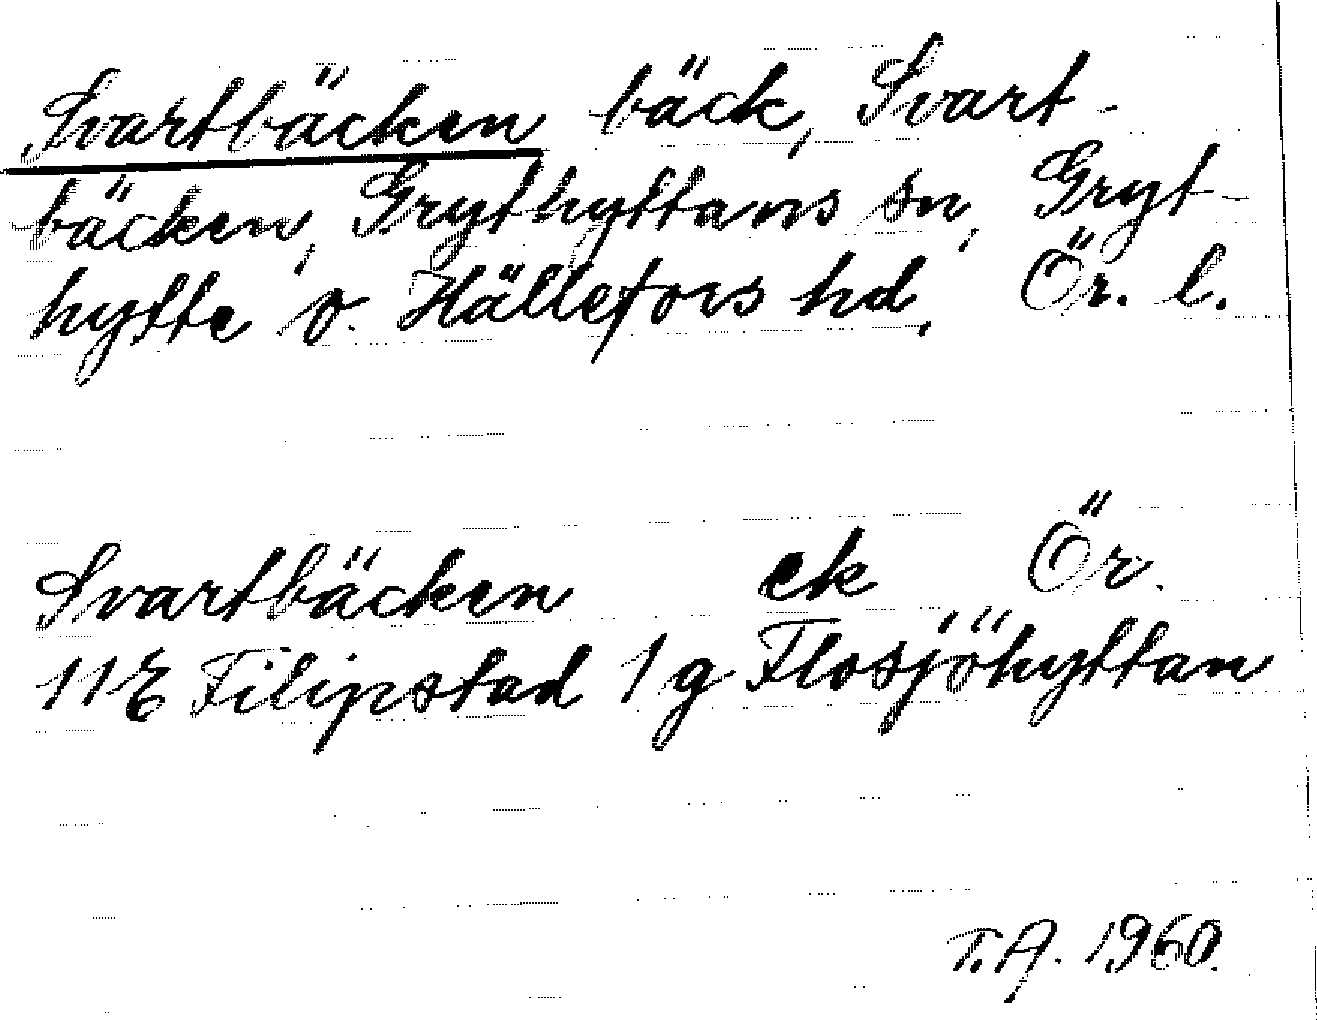 Svartbäcken bäck, Svart-
bäcken, Grythyttans sn, Gryt-
hytte o. Hällefors hd, Ör. l.
Svartbäcken ek Ör.
11E Filipstad 1g Flosjöhyttan
T.A. 1960.